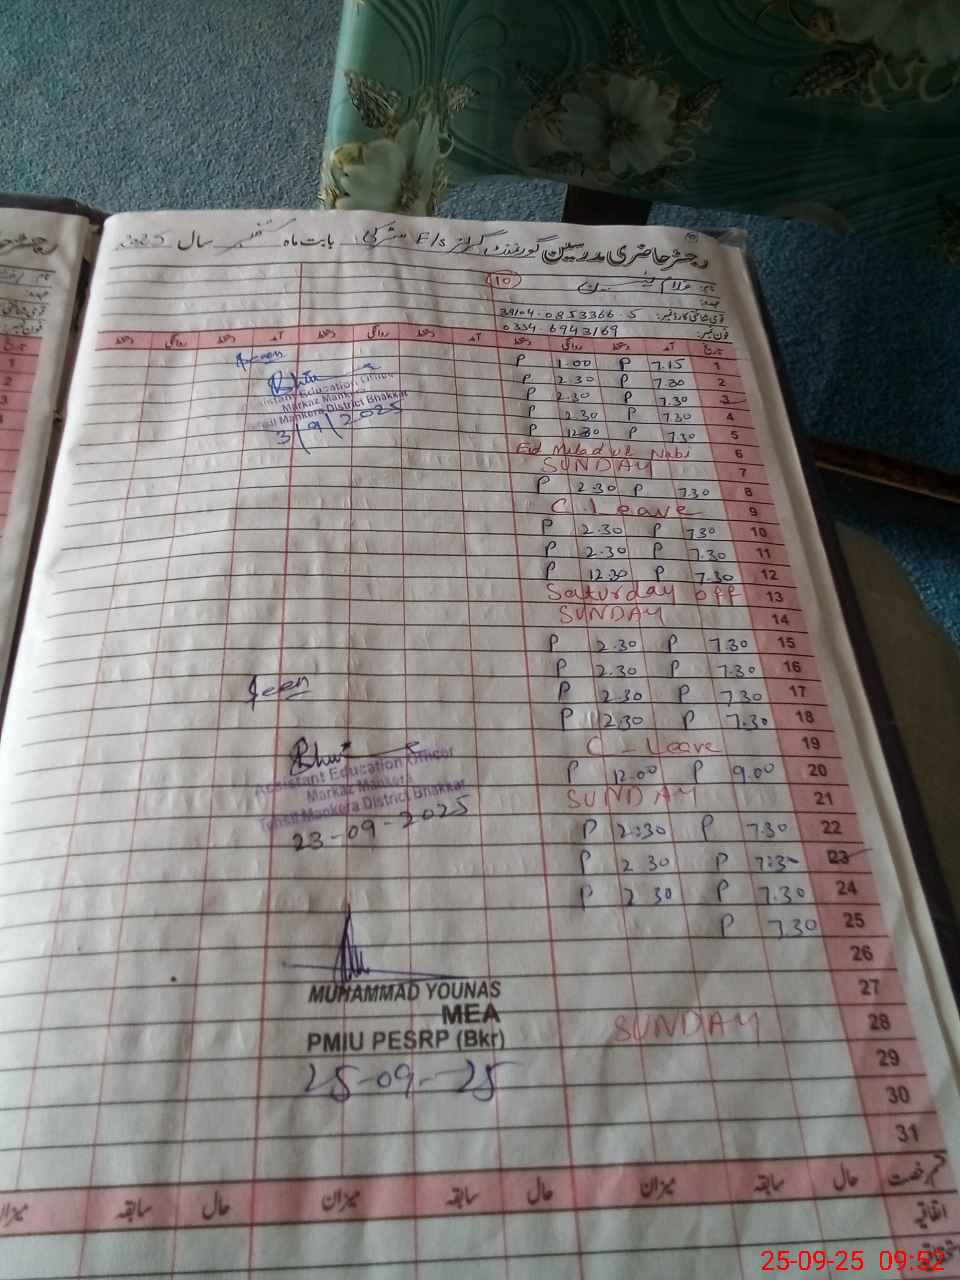 رجسٹر حاضری مدرسین گورنمنٹ گرلز E/S بابت ماہ ستمبر سال 2025
10
نام: غلام
عہدہ:
قومی شناختی کارڈ نمبر: 38104-0853366-5
فون نمبر: 0334-6943169
تاریخ آمد دستخط روانگی دستخط آمد دستخط روانگی دستخط آمد دستخط روانگی دستخط
1 7.15 P 1.00 P
2 7.30 P 2.30 P
3 7.30 P 2.30 P
4 7.30 P 2.30 P
5 7.30 P 12.30 P
6 Eid Milad ul Nabi
7 SUNDAY
8 7.30 P 2.30 P
9 C. Leave
10 7.30 P 2.30 P
11 7.30 P 2.30 P
12 7.30 P 12.30 P
13 Saturday off
14 SUNDAY
15 7.30 P 2.30 P
16 7.30 P 2.30 P
17 7.30 P 2.30 P
18 7.30 P 2.30 P
19 C - Leave
20 9.00 P 12.00 P
21 SUNDAY
22 7.30 P 2:30 P
23 7:30 P 2.30 P
24 7.30 P 2.30 P
25 7.30 P
26
27
28 SUNDAY
29
30
31
Seen
Assistant Education Officer
Markaz Mankera
Tehsil Mankera District Bhakkar
3/9/2025
Seen
Assistant Education Officer
Markaz Mankera
Tehsil Mankera District Bhakkar
23-09-2025
MUHAMMAD YOUNAS
MEA
PMIU PESRP (Bkr)
25-09-25
قسم رخصت حال سابقہ میزان حال سابقہ میزان حال سابقہ میزان
اتفاقیہ
25-09-25 09:52